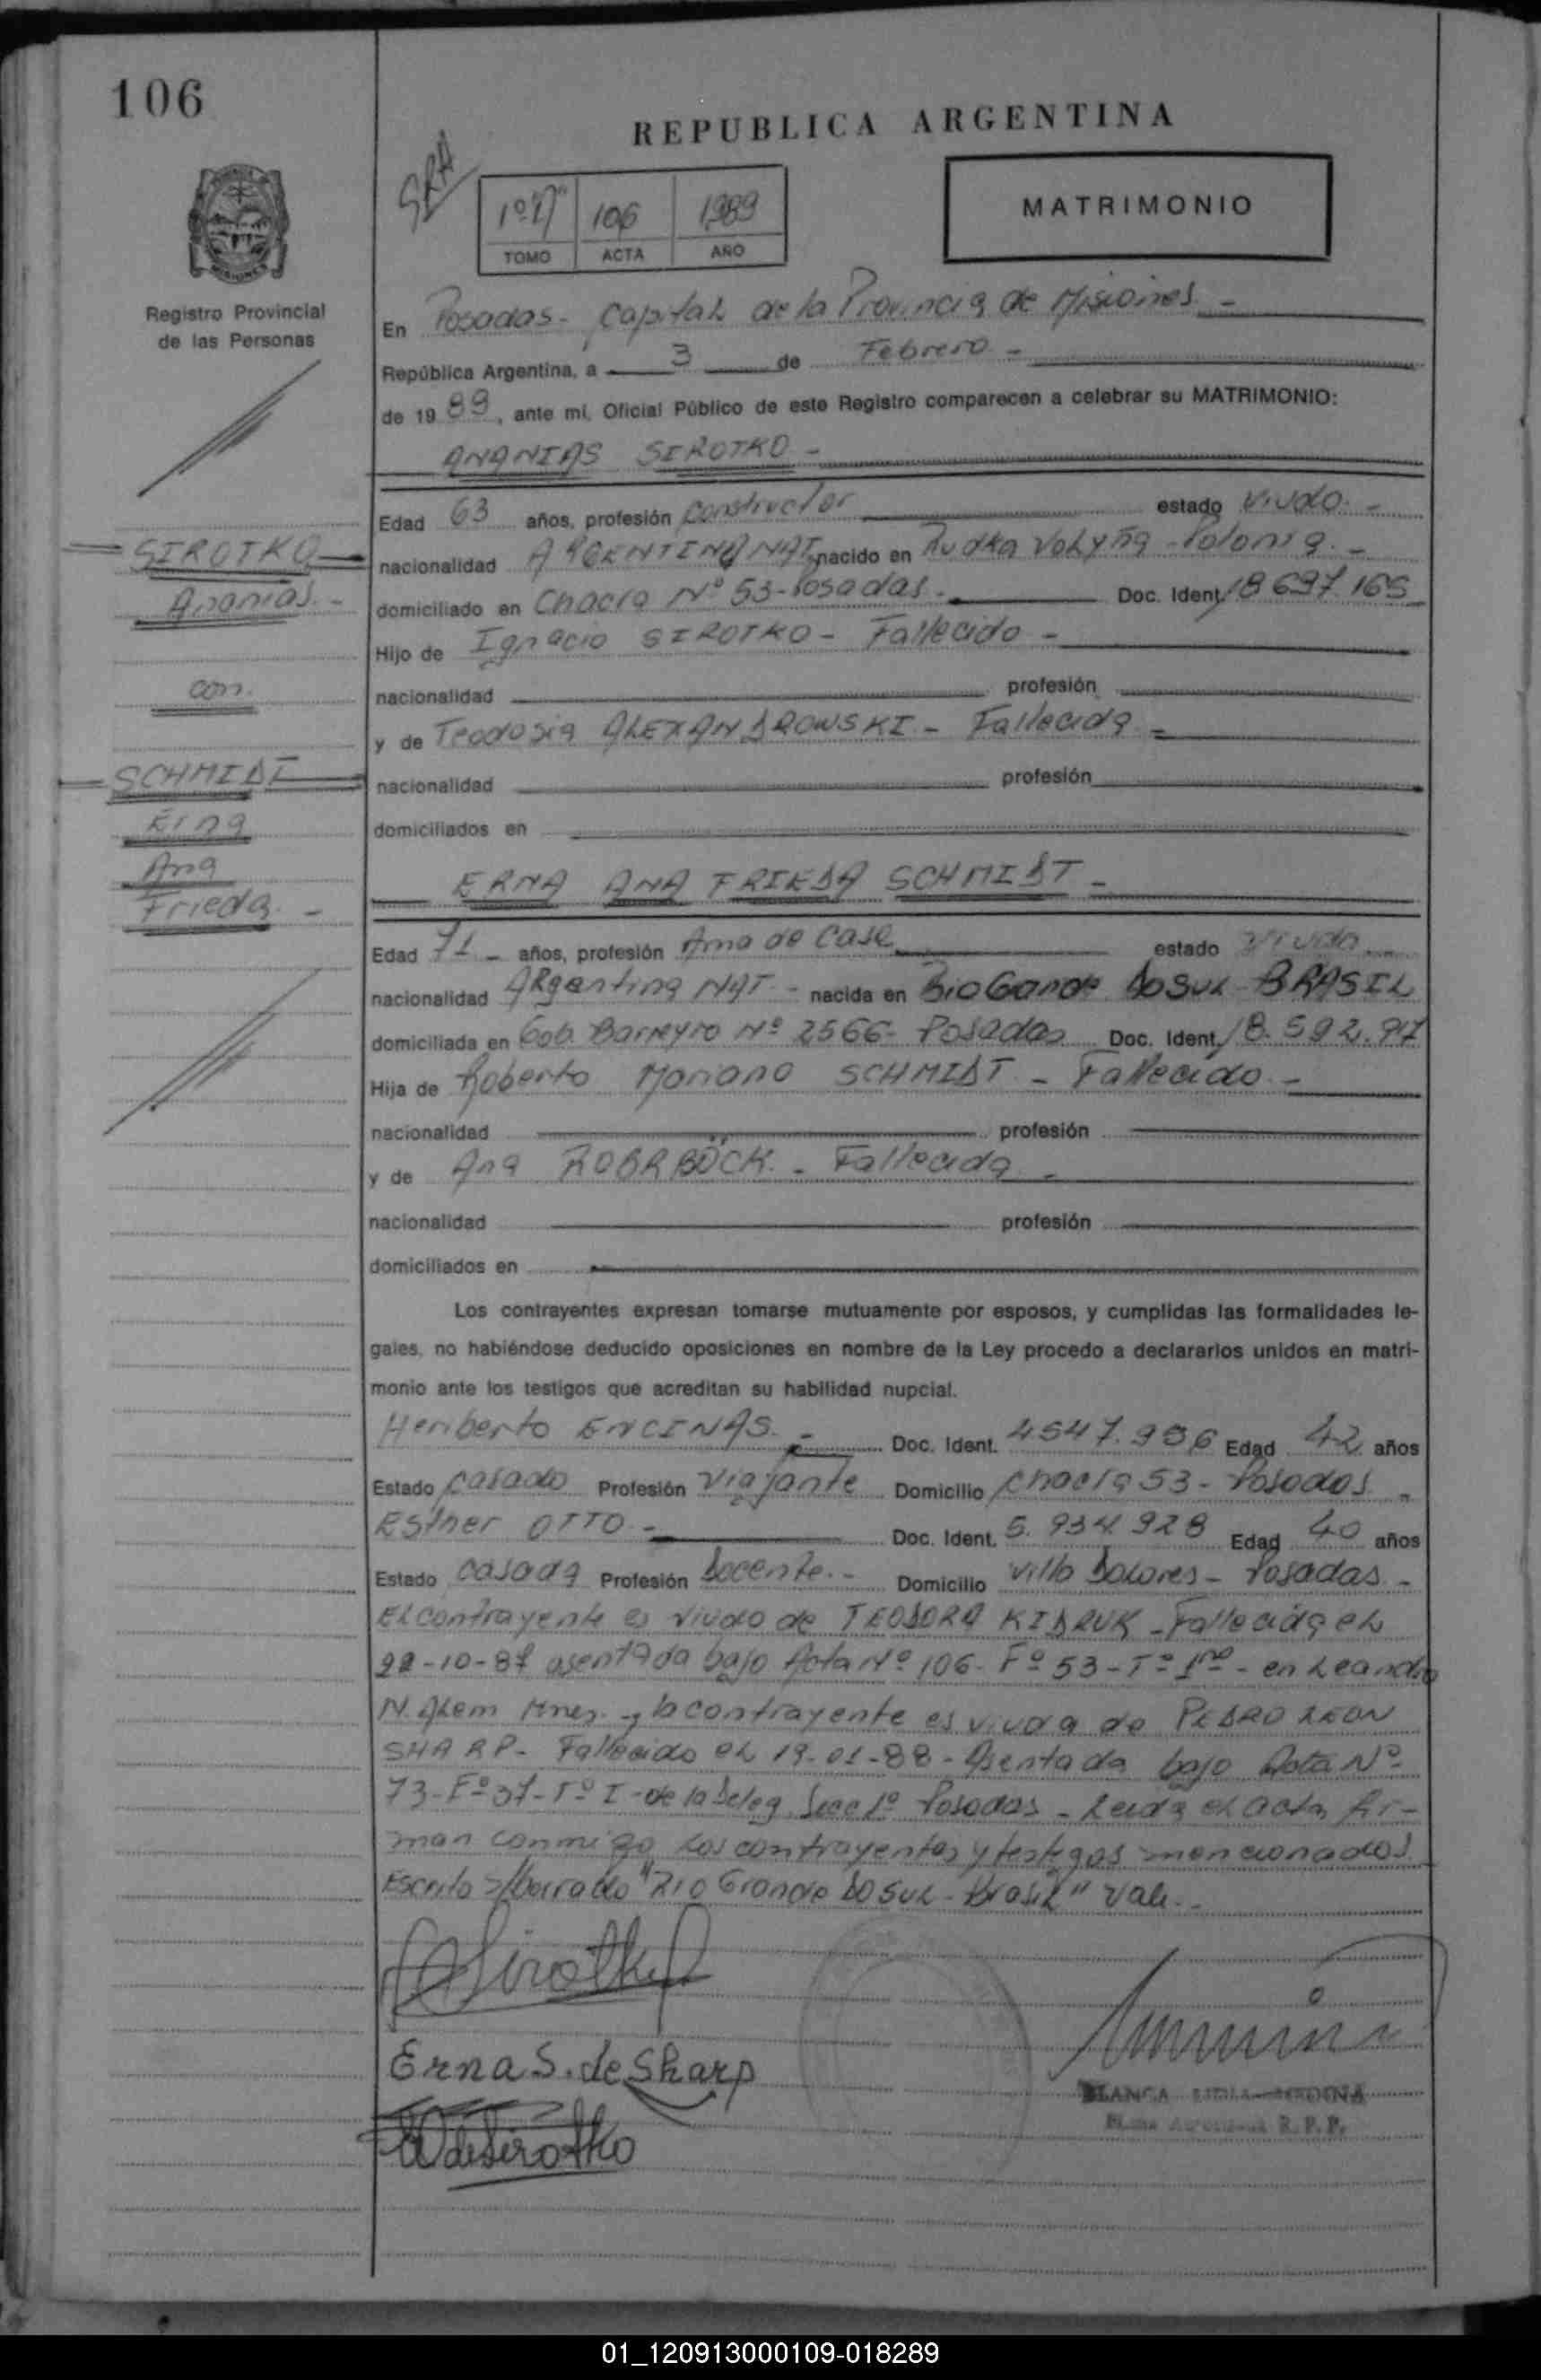 106
REPUBLICA ARGENTINA
SRA
1º "A" 106 1989
TOMO ACTA AÑO
MATRIMONIO
Registro Provincial
de las Personas
En Posadas - Capital de la Provincia de Misiones -
República Argentina, a 3 de Febrero -
de 19 89, ante mí, Oficial Público de este Registro comparecen a celebrar su MATRIMONIO:
ANANIAS SIROTKO -
Edad 63 años, profesión constructor estado viudo. -
nacionalidad ARGENTINA NAT. nacido en Rudka Volyña - Polonia. -
domiciliado en Chacra Nº 53 - Posadas. Doc. Ident. 18 697.165
Hijo de Ignacio SIROTKO - Fallecido -
nacionalidad profesión
y de Teodosia ALEXANDROWSKI. - Fallecida -
nacionalidad profesión
domiciliados en
SIROTKO
Ananias. -
con.
SCHMIDT
Erna
Ana
Frieda. -
ERNA ANA FRIEDA SCHMIDT -
Edad 71 - años, profesión Ama de Casa estado Viuda
nacionalidad Argentina NAT. - nacida en Rio Grande do Sul - BRASIL
domiciliada en Gob. Barreyro Nº 2566 - Posadas Doc. Ident. 18.592.917
Hija de Roberto Mariano SCHMIDT - Fallecido. -
nacionalidad profesión
y de Ana ROBRBÖCK. - Fallecida -
nacionalidad profesión
domiciliados en
Los contrayentes expresan tomarse mutuamente por esposos, y cumplidas las formalidades le-
gales, no habiéndose deducido oposiciones en nombre de la Ley procedo a declararlos unidos en matri-
monio ante los testigos que acreditan su habilidad nupcial.
Heriberto ENCINAS. - Doc. Ident. 4547.936 Edad 42 años
Estado casado Profesión Viajante Domicilio chacra 53 - Posadas -
Esther OTTO - Doc. Ident. 5.934.928 Edad 40 años
Estado casada Profesión Docente. - Domicilio Villa Dolores - Posadas -
El contrayente es viudo de TEODORA KIDRUK - Fallecida el
22-10-87 asentada bajo Acta Nº 106 - Fº 53 - Tº 1ro - en Leandro
N. Alem Mnes. - y la contrayente es viuda de PEDRO LEON
SHARP - Fallecido el 19-01-88 - Asentada bajo Acta Nº
73 - Fº 37 - Tº I - de la Deleg. Secc 1º Posadas - Leida el acta fir-
man conmigo los contrayentes y testigos mencionados
Escrito s/borrado "Rio Grande do Sul - Brasil" Vale. -
Sirotko
Erna S. de Sharp
de Sirotko
BLANCA LIDIA MEDINA
R. P. P.
01_120913000109-018289